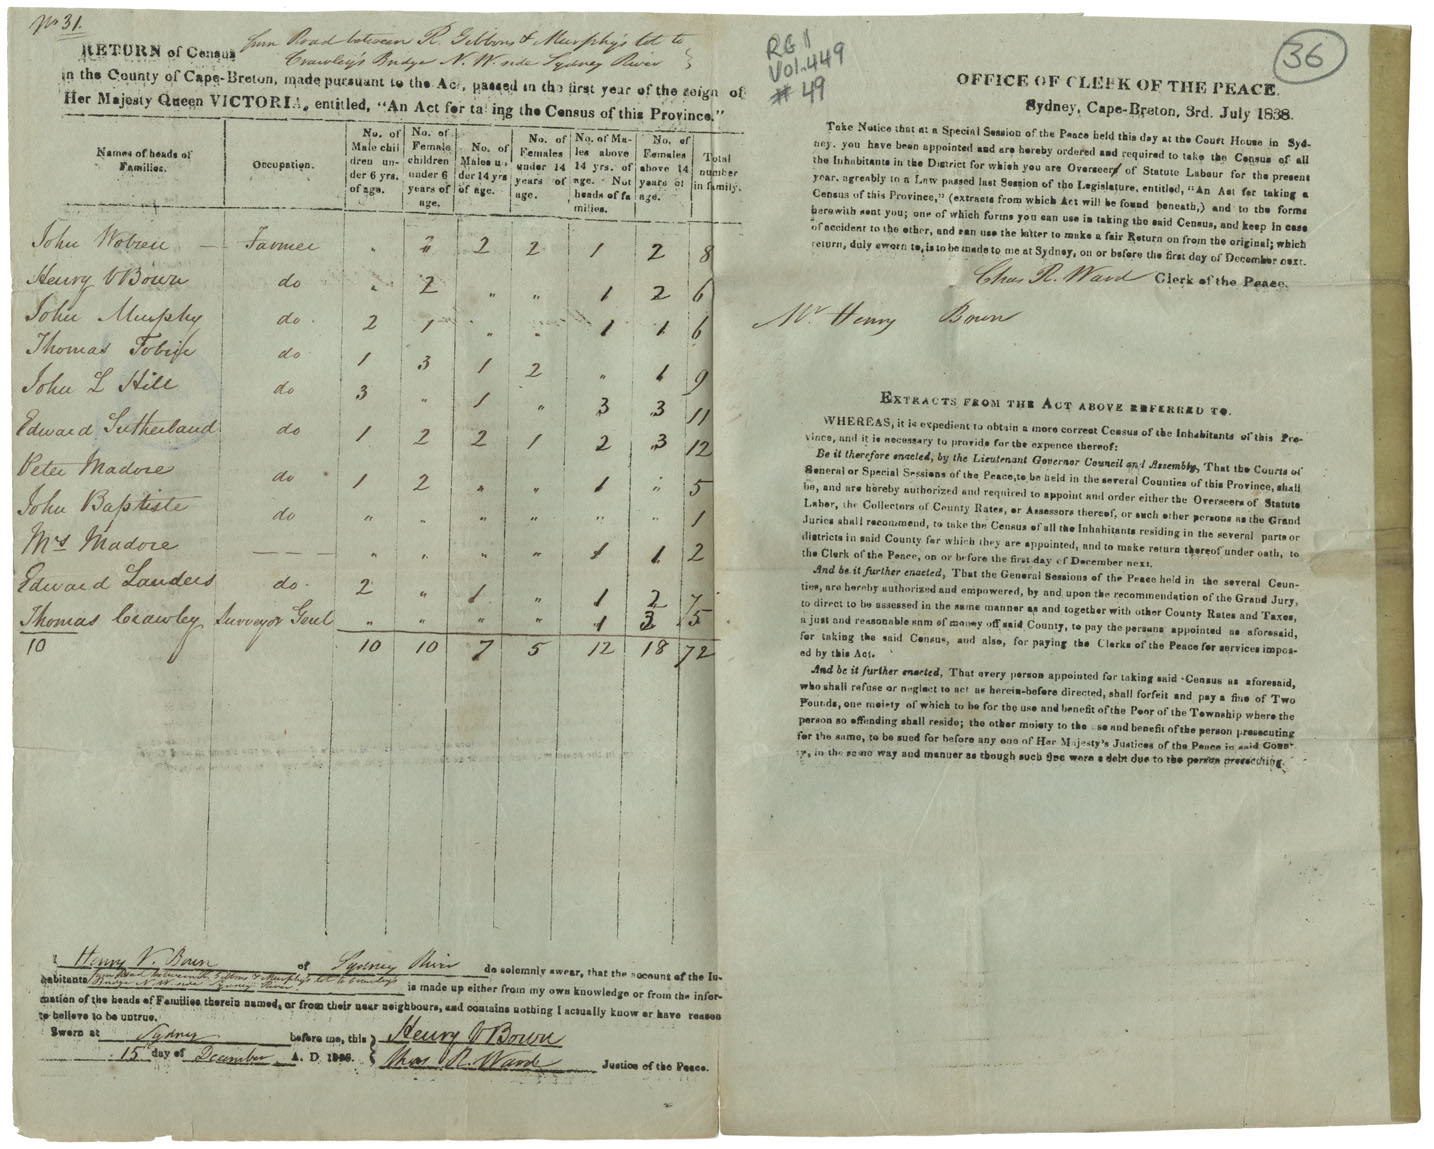 No 31.
RETURN of Census from Road between R. Gibbons & Murphy's lot to
Crawley's Bridge N.W side Sydney River
in the County of Cape-Breton, made pursuant to the Act, passed in the first year of the reign of
Her Majesty Queen VICTORIA, entitled, "An Act for taking the Census of this Province."
Names of heads of Families. | Occupation. | No. of Male children under 6 yrs. of age. | No. of Female children under 6 years of age. | No. of Males under 14 yrs of age. | No. of Females under 14 years of age. | No. of Males above 14 yrs. of age. Not heads of families. | No. of Females above 14 years of age. | Total number in family.
John — Farmer " " 2 2 1 2 8
Henry V Bown do " 2 " " 1 2 6
John Murphy do 2 1 " " 1 1 6
Thomas Tobin do 1 3 1 2 " 1 9
John L Hill do 3 " 1 " 3 3 11
Edward Sutherland do 1 2 2 1 2 3 12
Peter Madore do 1 2 " " 1 " 5
John Baptiste do " " " " " " 1
Mrs Madore — — — " " " " 1 1 2
Edward Landers do 2 " 1 " 1 2 7
Thomas Crawley Surveyor Genl " " " " 1 3 5
10 10 10 7 5 12 18 72
I Henry V. Bown of Sydney River do solemnly swear, that the account of the In-
habitants from Road between R. Gibbons & Murphy's lot to Crawley's
Bridge N.W side Sydney River is made up either from my own knowledge or from the infor-
mation of the heads of Families therein named, or from their near neighbours, and contains nothing I actually know or have reason
to believe to be untrue.
Sworn at Sydney before me, this } Henry V Bown
15 day of December A. D. 1838. { Chas R. Ward Justice of the Peace.
RG 1
Vol. 449
# 49
36
OFFICE OF CLERK OF THE PEACE.
Sydney, Cape-Breton, 3rd. July 1838.
Take Notice that at a Special Session of the Peace held this day at the Court House in Syd-
ney, you have been appointed and are hereby ordered and required to take the Census of all
the Inhabitants in the District for which you are Overseer of Statute Labour for the present
year, agreably to a Law passed last Session of the Legislature, entitled, "An Act for taking a
Census of this Province," (extracts from which Act will be found beneath,) and to the forms
herewith sent you; one of which forms you can use in taking the said Census, and keep in case
of accident to the other, and can use the latter to make a fair Return on from the original; which
return, duly sworn to, is to be made to me at Sydney, on or before the first day of December next.
Chas R. Ward Clerk of the Peace.
Mr Henry Bown
EXTRACTS FROM THE ACT ABOVE REFERRED TO.
WHEREAS, it is expedient to obtain a more correct Census of the Inhabitants of this Pro-
vince, and it is necessary to provide for the expence thereof:
Be it therefore enacted, by the Lieutenant Governor Council and Assembly, That the Courts of
General or Special Sessions of the Peace, to be held in the several Counties of this Province, shall
be, and are hereby authorized and required to appoint and order either the Overseers of Statute
Labor, the Collectors of County Rates, or Assessors thereof, or such other persons as the Grand
Juries shall recommend, to take the Census of all the Inhabitants residing in the several parts or
districts in said County for which they are appointed, and to make return thereof under oath, to
the Clerk of the Peace, on or before the first day of December next.
And be it further enacted, That the General Sessions of the Peace held in the several Coun-
ties, are hereby authorized and empowered, by and upon the recommendation of the Grand Jury,
to direct to be assessed in the same manner as and together with other County Rates and Taxes,
a just and reasonable sum of money off said County, to pay the persons appointed as aforesaid,
for taking the said Census, and also, for paying the Clerks of the Peace for services impos-
ed by this Act.
And be it further enacted, That every person appointed for taking said Census as aforesaid,
who shall refuse or neglect to act as herein-before directed, shall forfeit and pay a fine of Two
Pounds, one moiety of which to be for the use and benefit of the Poor of the Township where the
person so offending shall reside; the other moiety to the use and benefit of the person prosecuting
for the same, to be sued for before any one of Her Majesty's Justices of the Peace in said Coun-
ty, in the same way and manner as though such fine were a debt due to the person prosecuting.